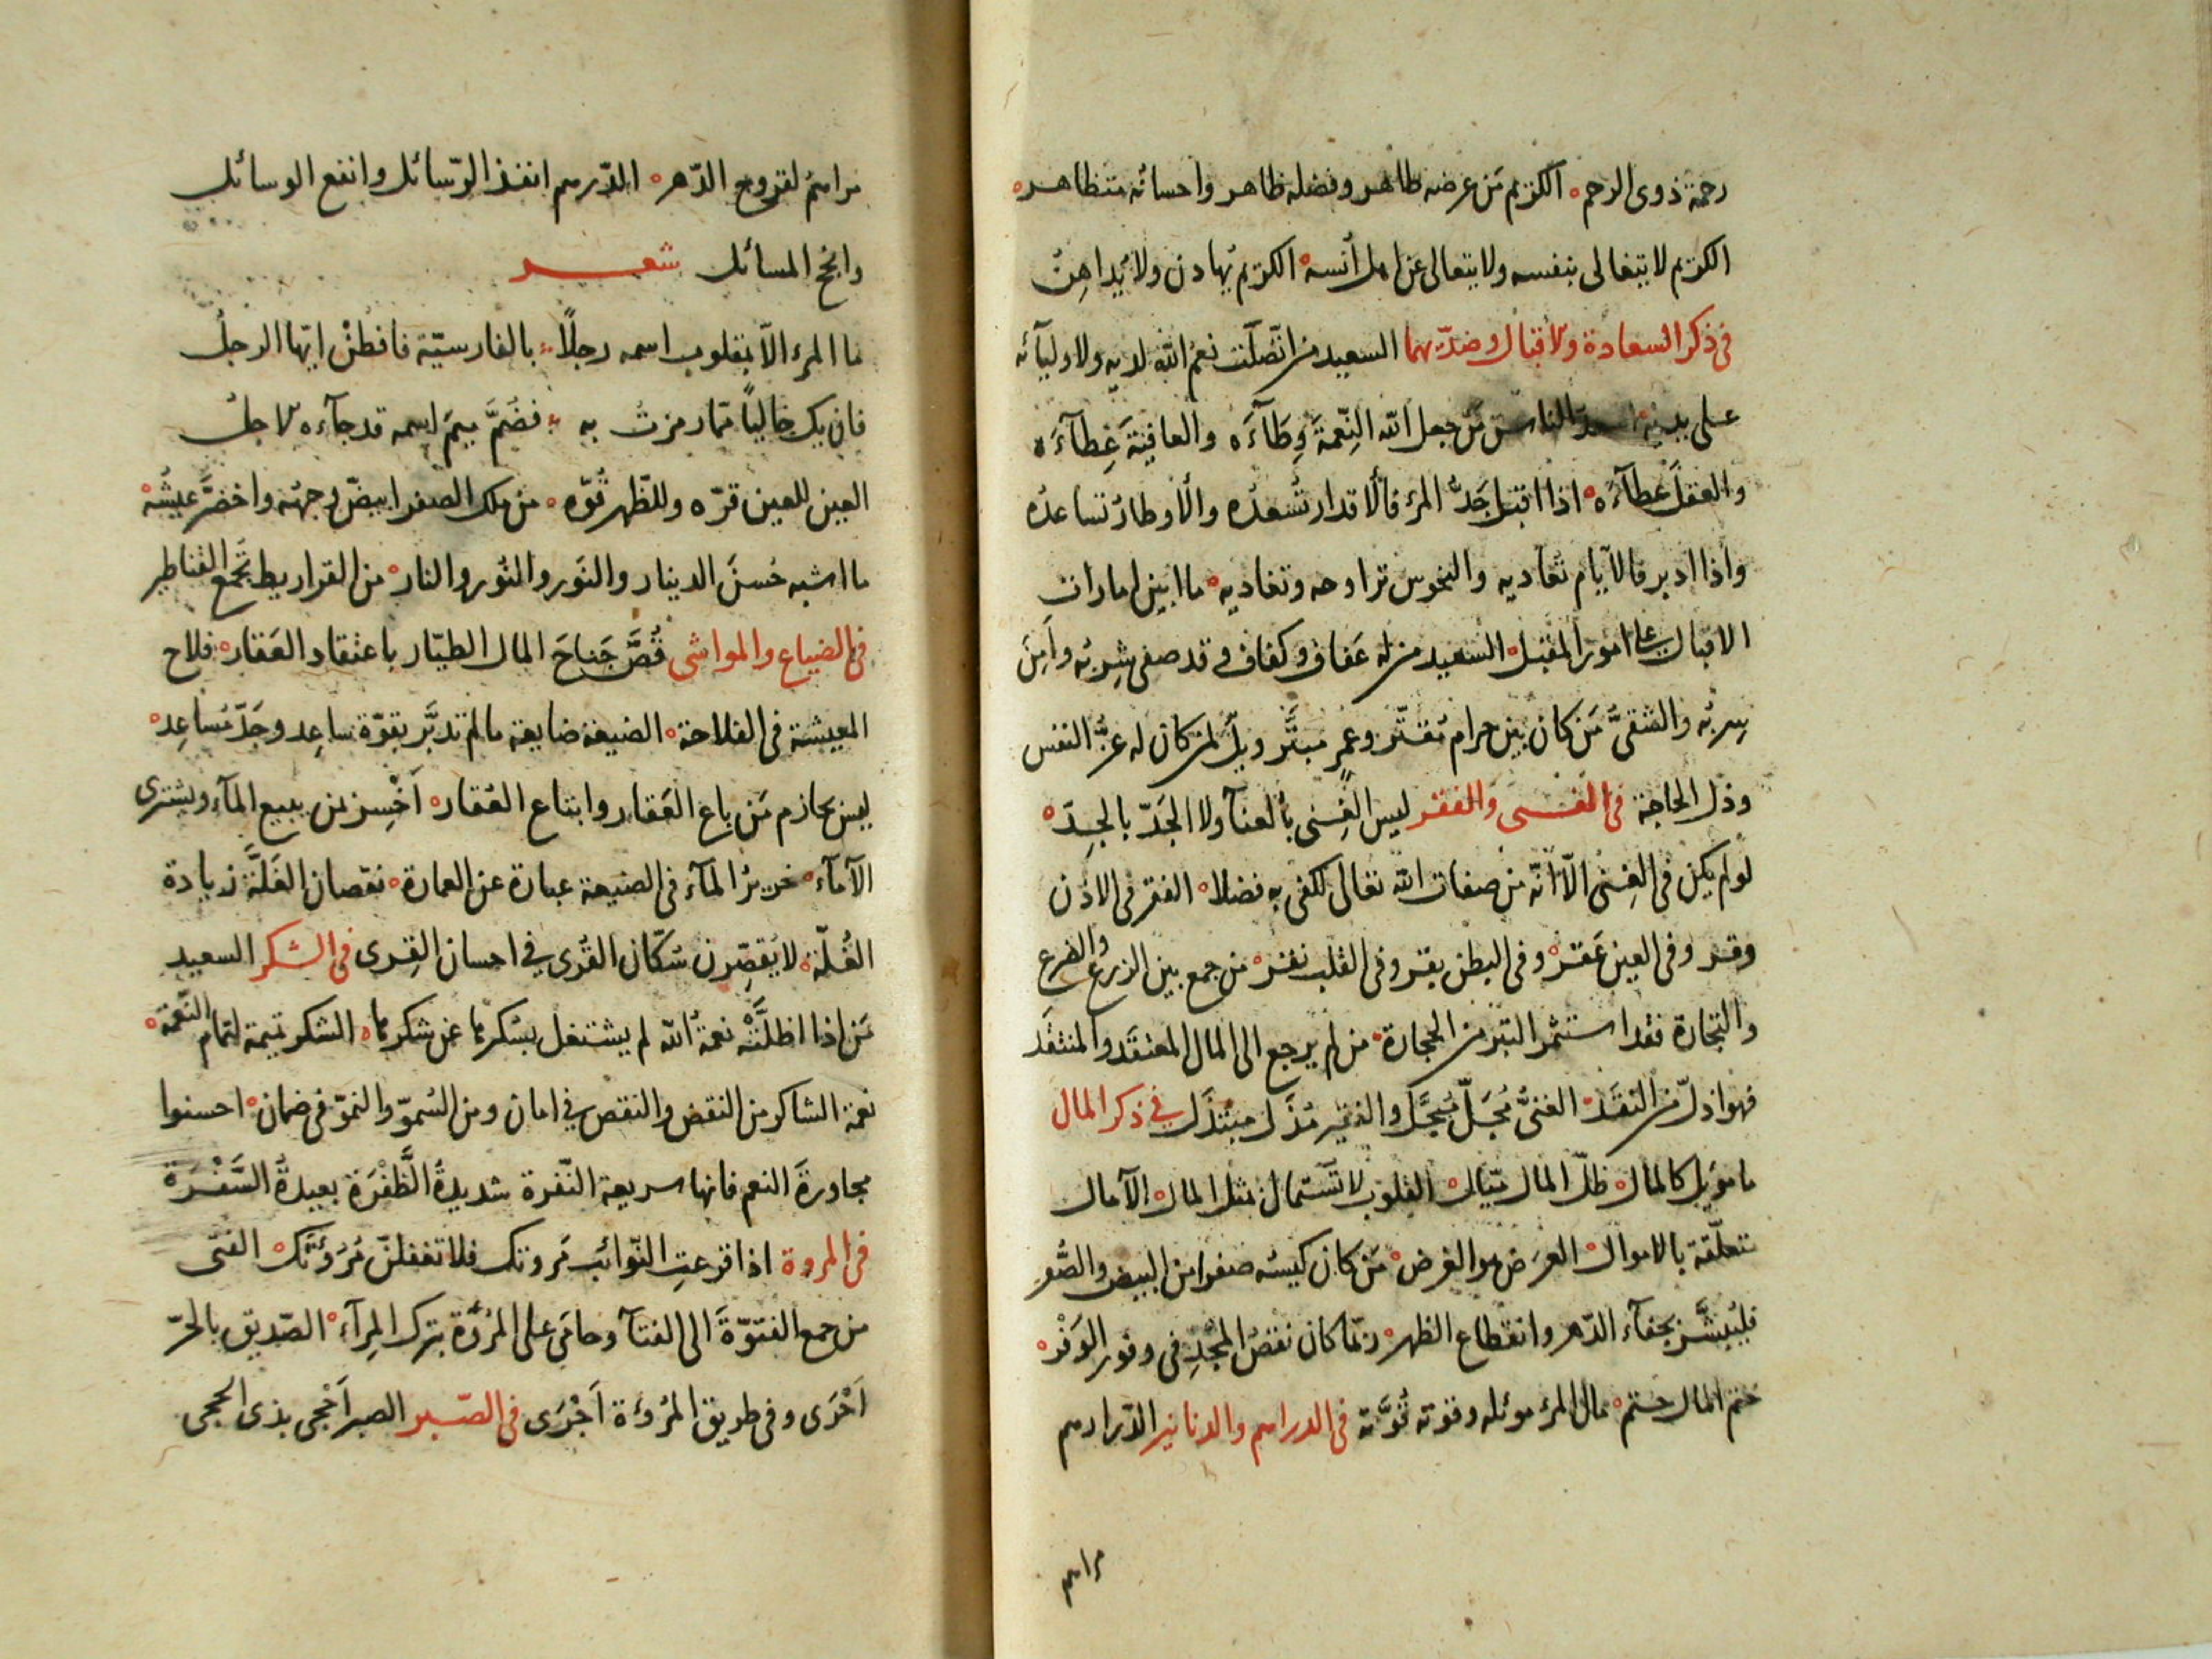 رحمة ذوى الرحم ه الكريم مَن عرضه طاهر وفضله ظاهر واحسانه متظاهر ه
الكريم لا يتغالى بنفسه ولا يتعالى عن اهل اُنسه ه الكريم يُهادن ولا يُداهِنُ
فى ذكر السعادة والاقبال وضدّيهما السعيد من اتّصلت نعمُ الله لديه ولاوليآئه
على يديه ه اسعدُ الناس مَن جعل الله النِّعمةَ وِطَآءَه والعافيةَ غِطآءَه
والعقلَ عطآءَه ه اذا اقبل جَدُّ المرء فالاقدار تُسعدُه والاوطارُ تساعدُه
واذا ادبر فالايّام تُعاديه والنحوس تراوحه وتغاديه ه ما ابين امارات
الاقبال على امور المقبل ه السعيد من له عَفاف وكفاف وقد صفى شِربُه واَمِنَ
سِربُه والشقىُّ مَن كان بين حرام مُقتَّر وعمرٍ مبتَّر ويلٌ لمن كان له عزُّ النفس
وذل الحاجة فى الغنى والفقر ليس الغِنى بالعنآ ولا الجَدّ بالجِدّ ه
لو لم يكن فى الغِنى الّا انّه من صفات الله تعالى لكفى به فضلا ه الفقر فى الاذن
وقر وفى العين عَقر ه وفى البطن بقر وفى القلب نقر ه من جمع بين الزرع والضرع
والتجارة فقد استثمر التبر من الحجارة ه من لم يرجع الى المال المعتقَد والمنتقَد
فهو اذلّ من النقَد ه الغنىُّ مُجَلّ مُبجَّل والفقير مُذَل مبتذَل فى ذكر المال
ما مؤيل كالمال ه ظلّ المال ميّال ه القلوب لا تُستمال بمثل المال ه الآمال
متعلّقة بالاموال ه العرَض هو الغرض ه مَن كان كيسه صفرا من البيض والصُّفر
فليُبشَّر بجفآء الدّهر وانقطاع الظهر ه ربّما كان نقصُ المجدِ فى وفور الوَفر ه
ختم المال حتم ه مال المرء موئله وقوته قُوَّته فى الدراهم والدنانير الدّراهم
مراهم
مراهمُ لقروح الدّهر ه الدّرهم انفذ الرّسائل وانفع الوسائل
وانجح المسائل شعر
ما المرء الّا بمقلوب اسمه رجلاً ه بالفارسيّة فافطُنْ ايّها الرجلُ
فان يك خالياً ممّا رمزتُ به ه فضُمَّ ميمَ اسمه قد جآءه الاجلُ
العين للعين قرّه وللظهر قُوّه ه من ملك الصفر ابيضّ وجهُه واخضرَّ عيشُه ه
ما اشبه حُسنَ الدينار والنَور والنُور والنار ه من القراريط تُجمع القناطير
فى الضياع والمواشى قُصَّ جَناحَ المال الطيّار باعتقاد العَقار ه فلاح
المعيشة فى الفلاحة ه الضيعة ضايعة ما لم تدبَّر بقوّة ساعِد وجَدّ مُساعِد ه
ليس بحازم مَن باع العَقار وابتاع العُقار ه اَخْسِر بمن يبيع المآء ويشترى
الاَمآء ه خرير المآء فى الضيعة عبارة عن العمارة ه نقصان الغَلَّة زيادة
الغُلّة ه لا يُقصِّرن سُكّان القُرى فى احسان القِرى فى الشكر السعيد
مَن اذا اظلَّتْه نعمةُ الله لم يشتغل بسُكرها عن شكرها ه الشكر تميمة لتمام النّعمة ه
نعمة الشاكر من النقض والنقص فى امان ومن السُموّ والنموّ فى ضمان ه احسنوا
مجاورةَ النعم فانها سريعة النّفرة شديدةُ الطَّفْرَة بعيدةُ السَّفْرَة
فى المروة اذا قرعتِ النّوائبُ مَروتك فلا تغفلنّ مُرُوَّتَك ه الفتى
من جمع الفتوّةَ الى الفتآ وحامَى على المرُوَّة بترك المِرآء ه الصّديق بالحُرّ
اَحْرَى وفى طريق المرُؤة اَجْرَى فى الصّبر الصبر اَحْجى بذى الحجى